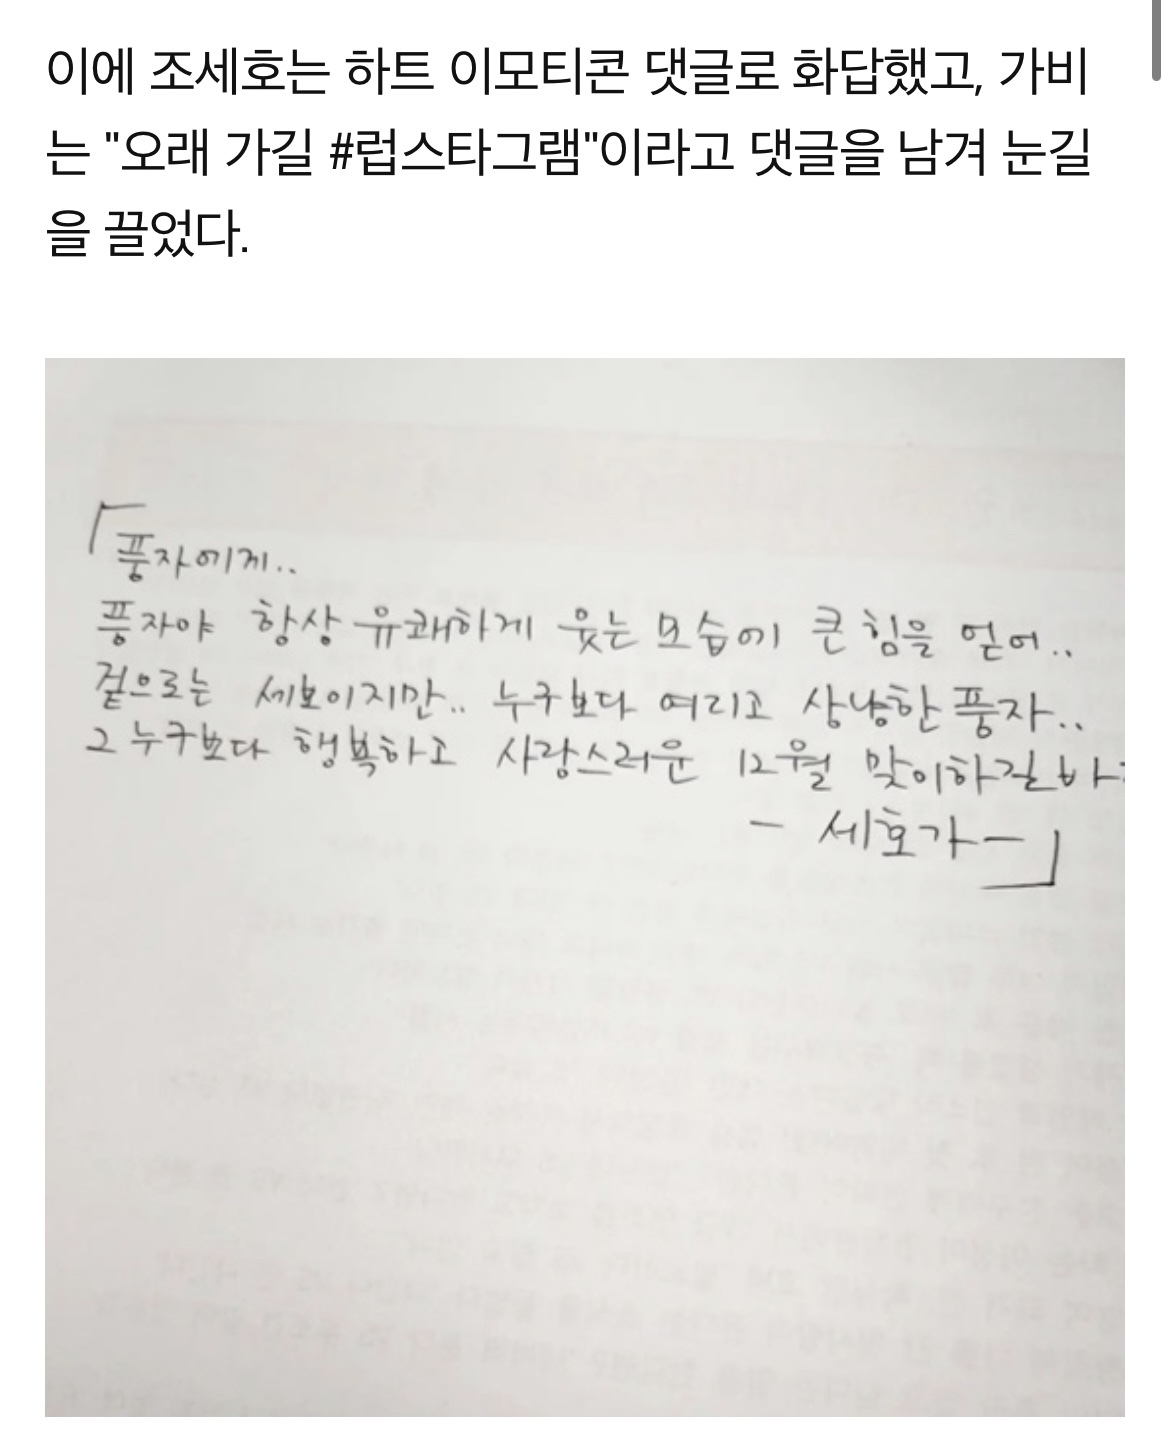 이에 조세호는 하트 이모티콘 댓글로 화답했고, 가비
는 "오래 가길 #럽스타그램"이라고 댓글을 남겨 눈길
을 끌었다.
「풍자에게..
풍자야 항상 유쾌하게 웃는 모습에 큰 힘을 얻어..
겉으로는 세보이지만.. 누구보다 여리고 상냥한 풍자..
그 누구보다 행복하고 사랑스러운 12월 맞이하길
- 세호가 -」